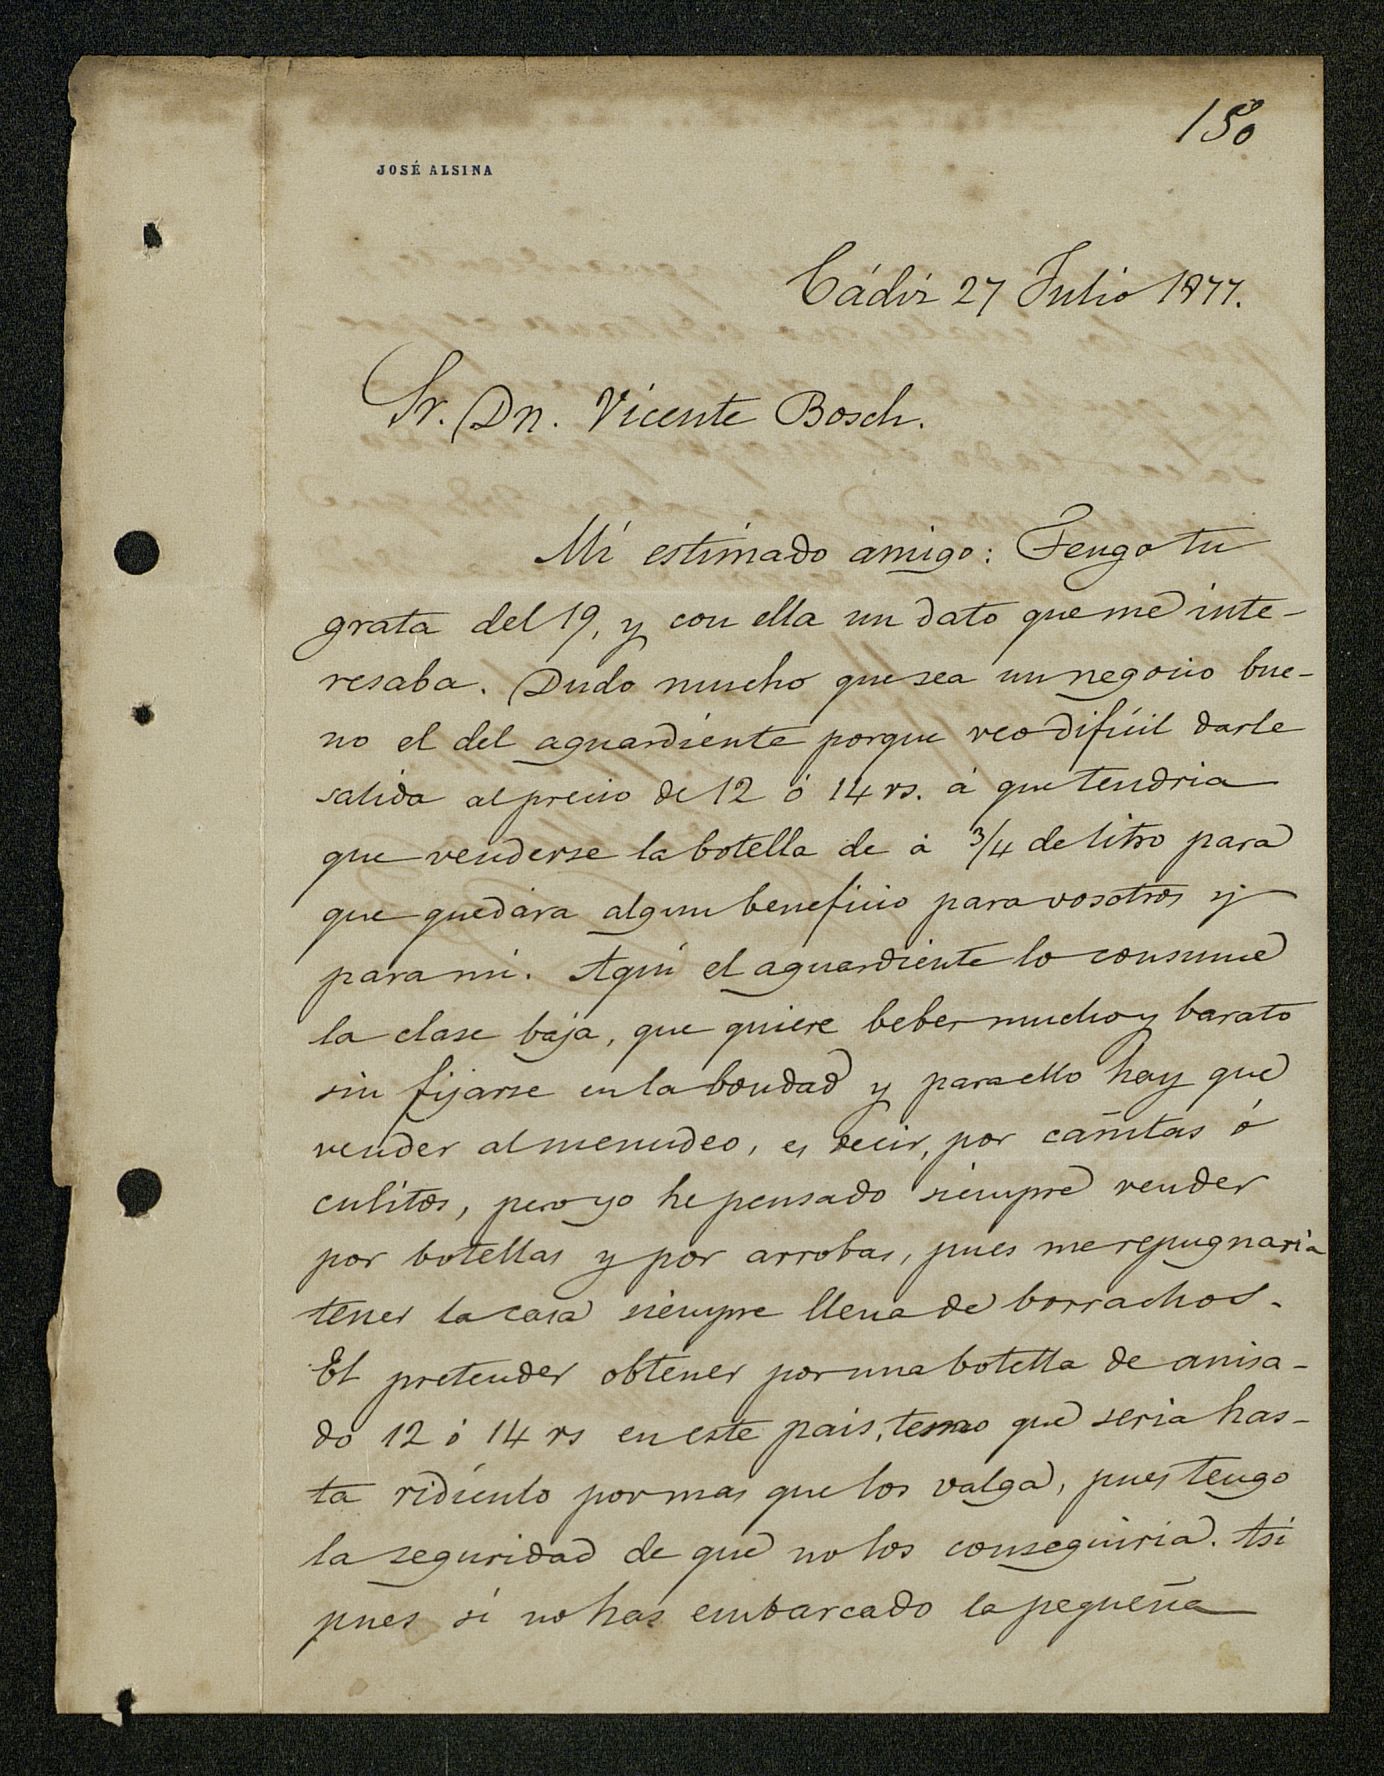 150
JOSÉ ALSINA
Cádiz 27 Julio 1877.
Sr. Dn. Vicente Bosch.
Mi estimado amigo: Tengo tu
grata del 19, y con ella un dato que me inte-
resaba. Dudo mucho que sea un negocio bue-
no el del aguardiente porque veo difícil darle
salida al precio de 12 ó 14 rs. á que tendria
que venderse la botella de á 3/4 de litro para
que quedára algun beneficio para vosotros y
para mi. Aquí el aguardiente lo consume
la clase baja, que quiere beber mucho y barato
sin fijarse en la bondad y para ello hay que
vender al menudeo, es decir, por cañitas ó
culitos, pero yo he pensado siempre vender
por botellas y por arrobas, pues me repugnaria
tener la casa siempre llena de borrachos.
El pretender obtener por una botella de anisa-
do 12 ó 14 rs en este pais, temo que seria has-
ta ridículo por mas que los valga, pues tengo
la seguridad de que no los conseguiria. Asi
pues si no has embarcado la pequeña